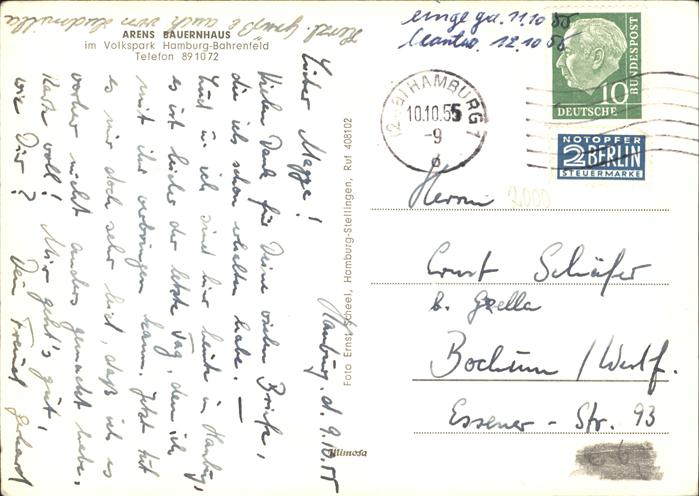 Herzl. Grüße auch von Ludmilla
ARENS BAUERNHAUS
im Volkspark Hamburg-Bahrenfeld
Telefon 891072
Hamburg, d. 9.10.55
Lieber Magge!
Vielen Dank für Deine vielen Briefe,
die ich schon erhalten habe. —
und ich sind hier heute in Hamburg,
es ist leider der letzte Tag, den ich
mit ihr verbringen kann. Jetzt tut
es mir doch sehr leid, daß ich es
vorher nicht anders gemacht habe.
Karte voll! Mir geht's gut,
wie Dir? Dein Freund Gerhard
Foto Ernst Scheel, Hamburg-Stellingen, Ruf 408102
Mimosa
einge ga. 11.10.55
beantw. 12.10.55.
HAMBURG 7
10.10.55
-9
DEUTSCHE
BUNDESPOST
10
NOTOPFER
2 BERLIN
STEUERMARKE
2000
Herrn
Ernst Schäfer
b. Gzella
Bochum / Westf.
Essener - Str. 93